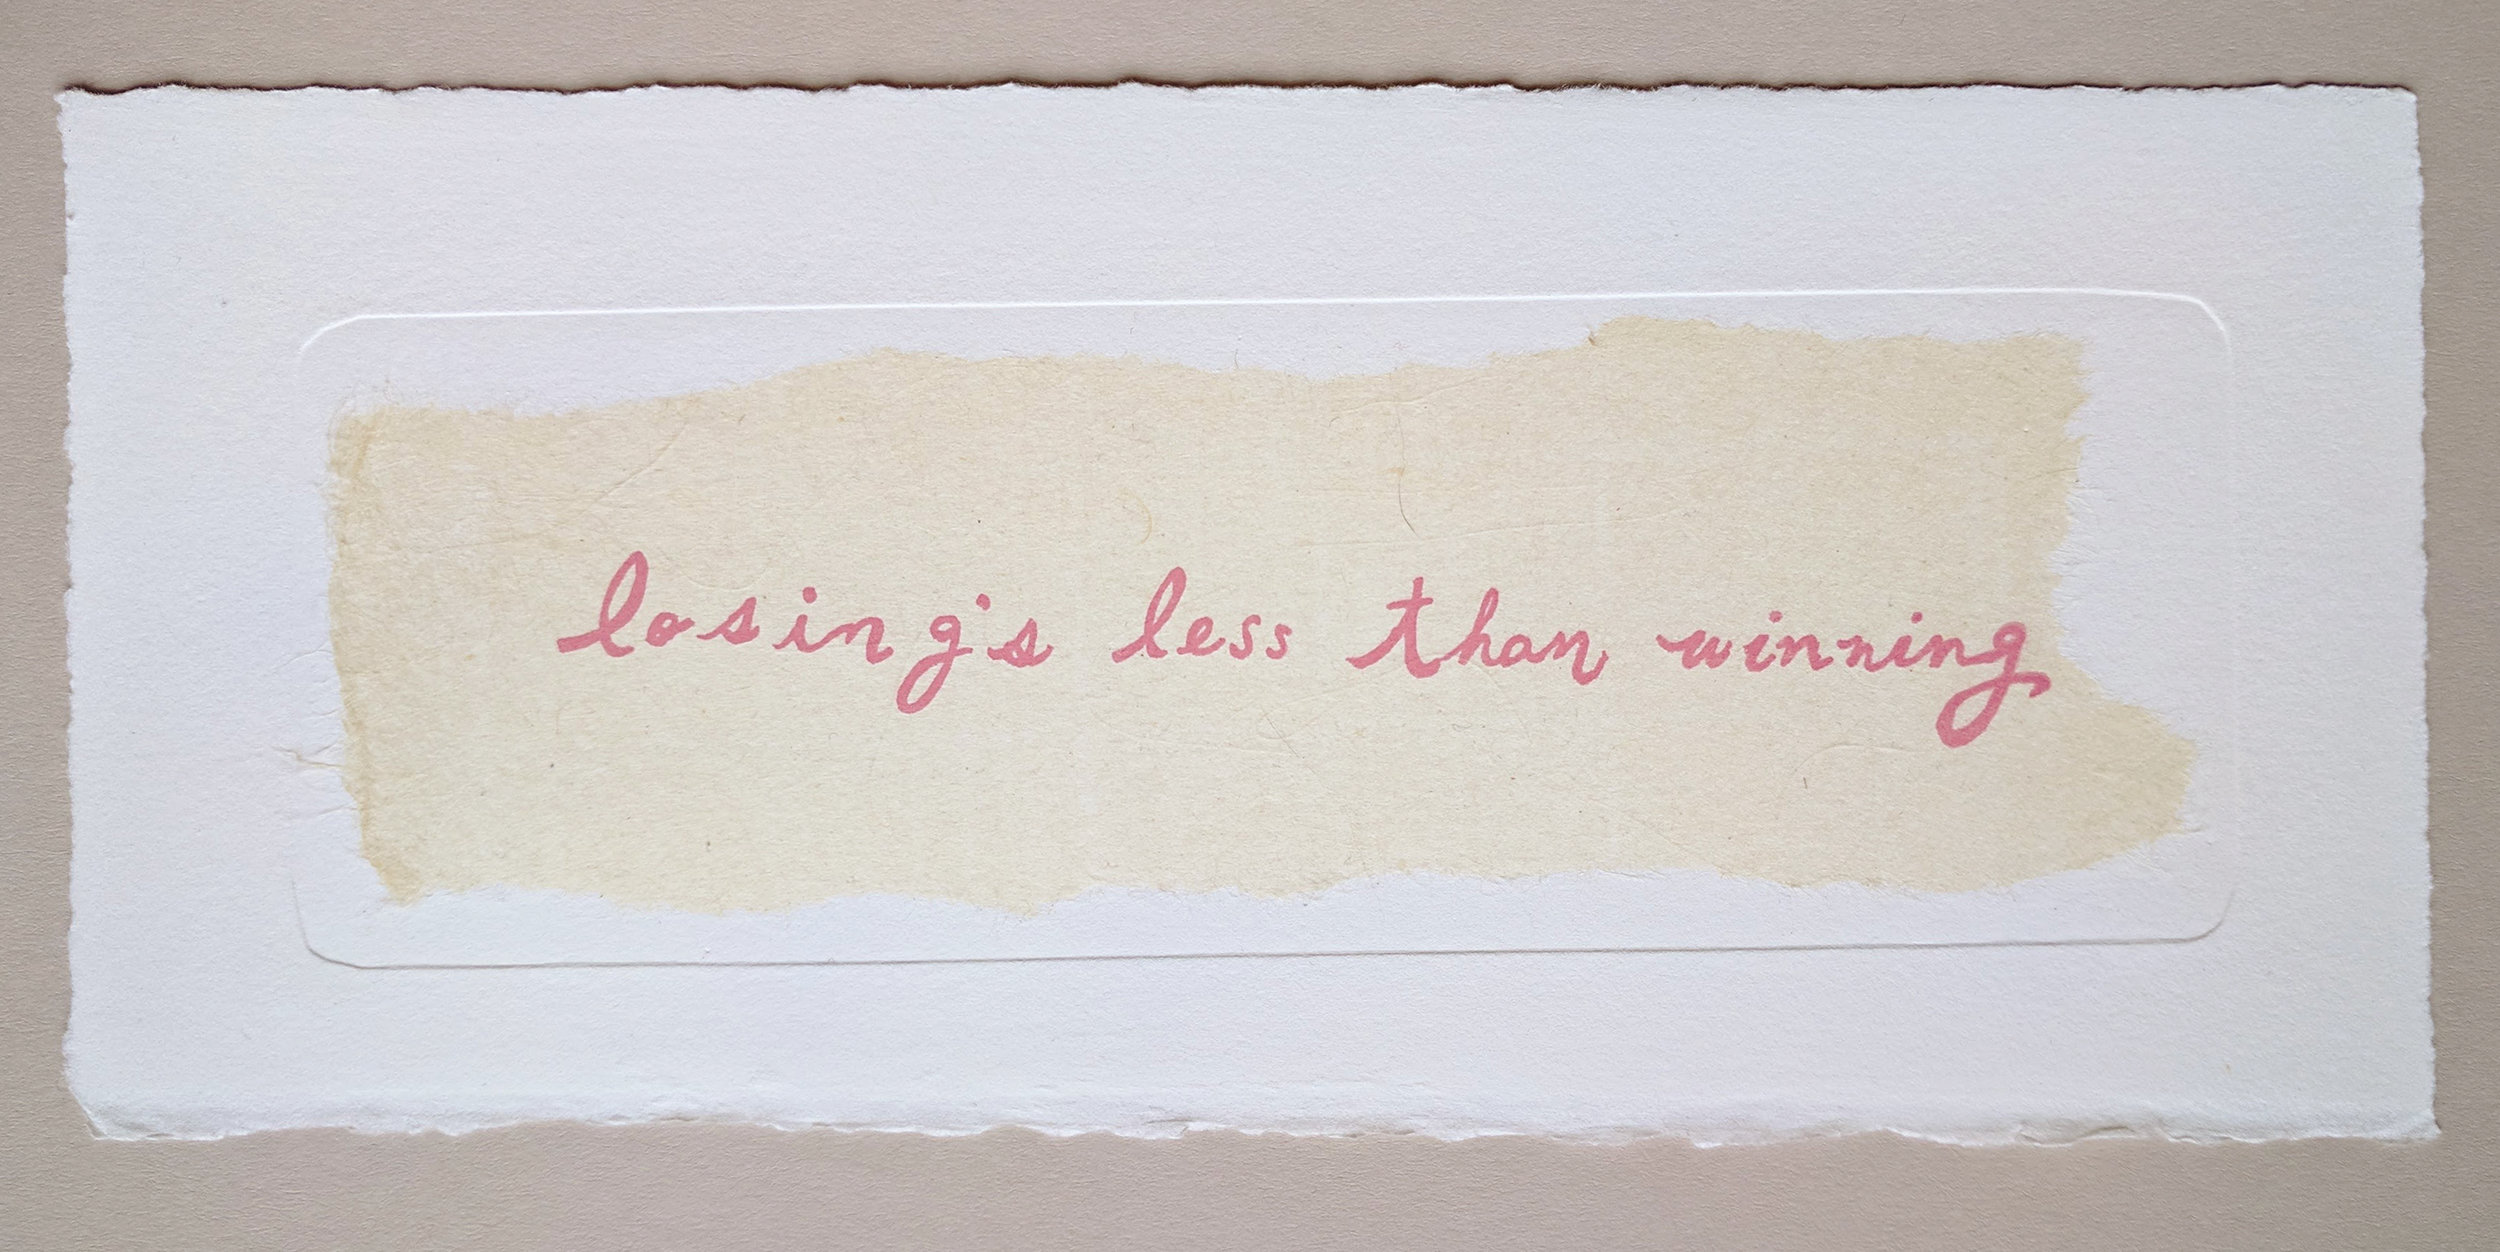 losing's less than winning